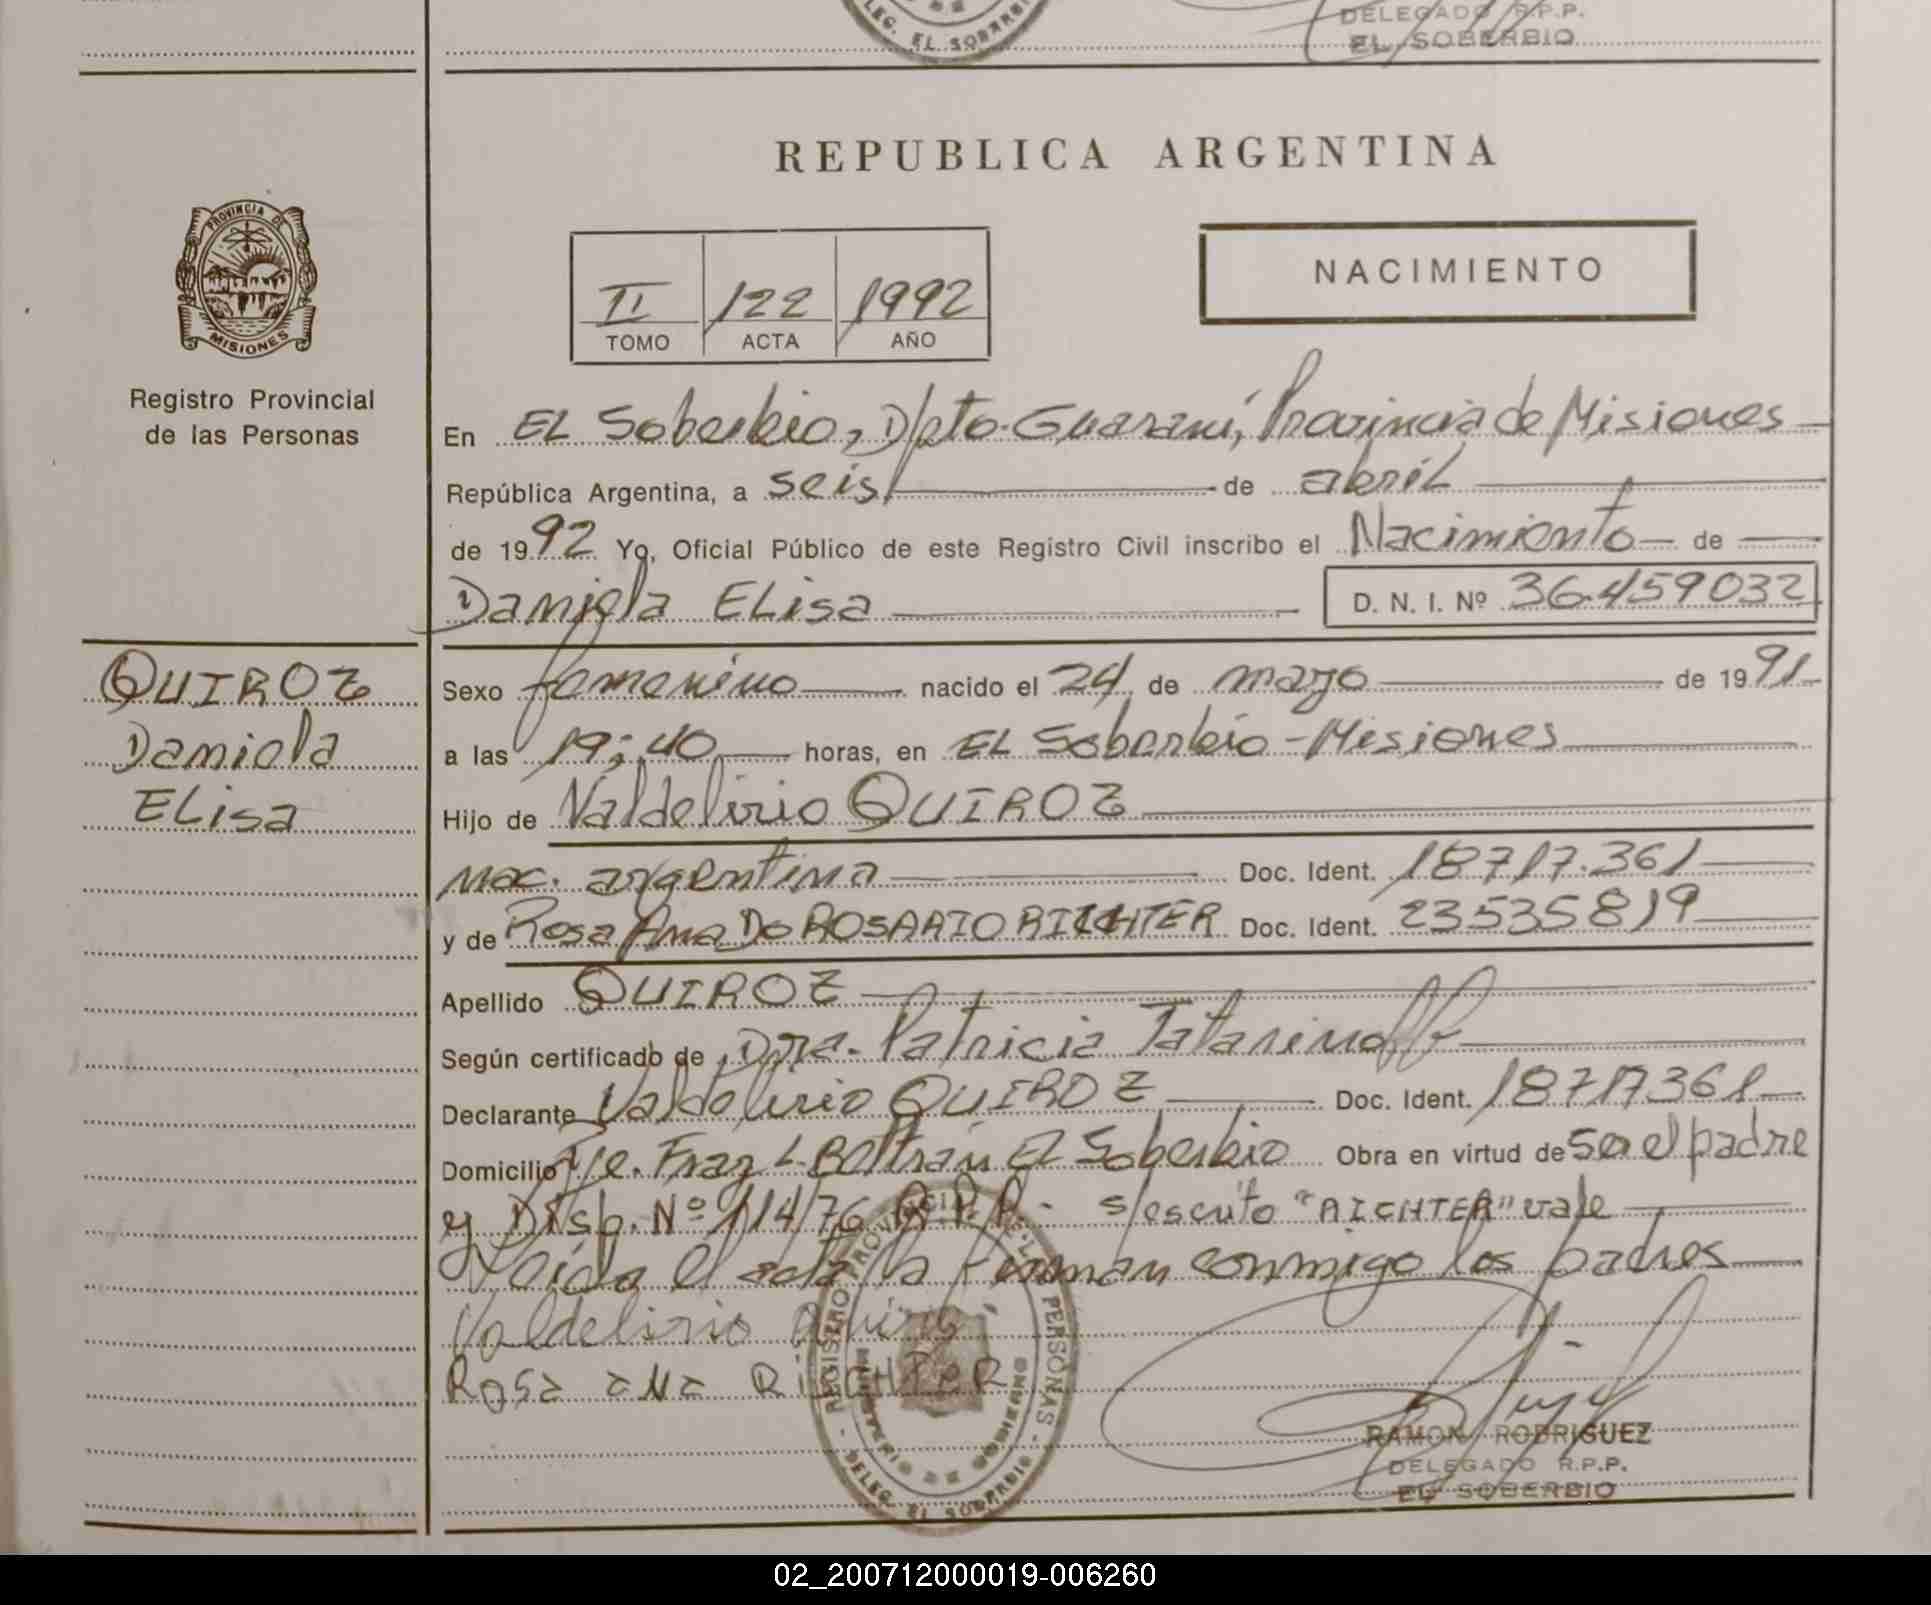 DELEG. EL SOBERBIO
DELEGADO R.P.P.
EL SOBERBIO
REPUBLICA ARGENTINA
PROVINCIA DE
MISIONES
Registro Provincial
de las Personas
II 122 1992
TOMO ACTA AÑO
NACIMIENTO
En EL Soberbio, Dpto. Guaraní, Provincia de Misiones
República Argentina, a seis de abril
de 1992 Yo, Oficial Público de este Registro Civil inscribo el Nacimiento de
Daniela ELisa D. N. I. Nº 36.459032
QUIROZ
Daniela
ELisa
Sexo femenino nacido el 24 de mayo de 1991
a las 19:40 horas, en EL Soberbio - Misiones
Hijo de Valdelirio QUIROZ
nac. argentina Doc. Ident. 18717.361
y de Rosa Ana Do ROSARIO RICHTER Doc. Ident. 23535819
Apellido QUIROZ
Según certificado de Dra. Patricia Tatarinoff
Declarante Valdelirio QUIROZ Doc. Ident. 18717361
Domicilio Fray L. Beltrán El Soberbio Obra en virtud de ser el padre
y Disp. Nº 114/76 R.P.P. s/escrito "RICHTER" vale
Leída el acta la firman conmigo los padres
Valdelirio Quiroz
Rosa ana RICHTER
REGISTRO PROVINCIAL DE LAS PERSONAS
MINISTERIO DE GOBIERNO
DELEG. EL SOBERBIO
RAMON RODRIGUEZ
DELEGADO R.P.P.
EL SOBERBIO
02_200712000019-006260